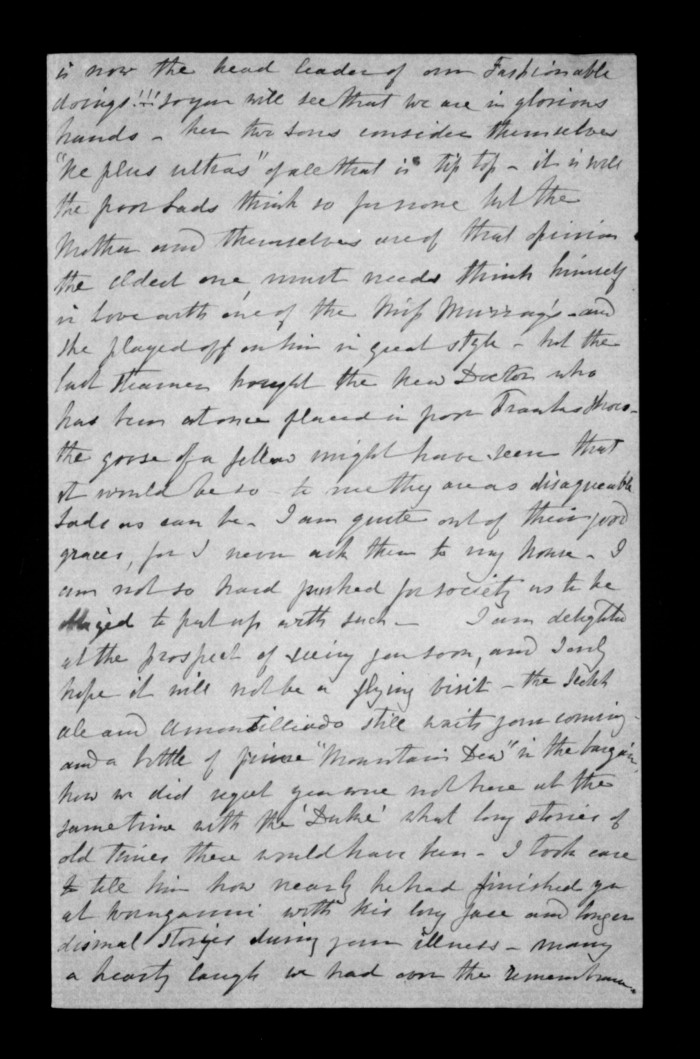 is now the head leader of our Fashionable
doings!!! so you will see that we are in glorious
hands - her two sons consider themselves
"Ne plus ultras" of all that is tip top - it is well
the poor Lads think so for none but the
Mother and themselves are of that opinion
the eldest one, must needs think himself
in Love with one of the Miss Murray's - and
she played off on him in great style - but the
last Steamer brought the New Doctor who
has been at once placed in poor Franks shoes -
the goose of a fellow might have seen that
it would be so - to me they are as disagreeable
Lads as can be - I am quite out of their good
graces, for I never ask them to my house - I
am not so hard pushed for society as to be
obliged to put up with such - I am delighted
at the prospect of seeing you soon, and I only
hope it will not be a flying visit - the Scotch
ale and Amontilliado still waits your coming -
and a bottle of prime "Mountain Dew" in the bargain,
how we did regret you were not here at the
same time with the 'Duke' what long stories of
old times there would have been - I took care
to tell him how nearly he had finished you
at Wonganui with his long face and longer
dismal stories during your illness - many
a hearty laugh we had over the remembrance